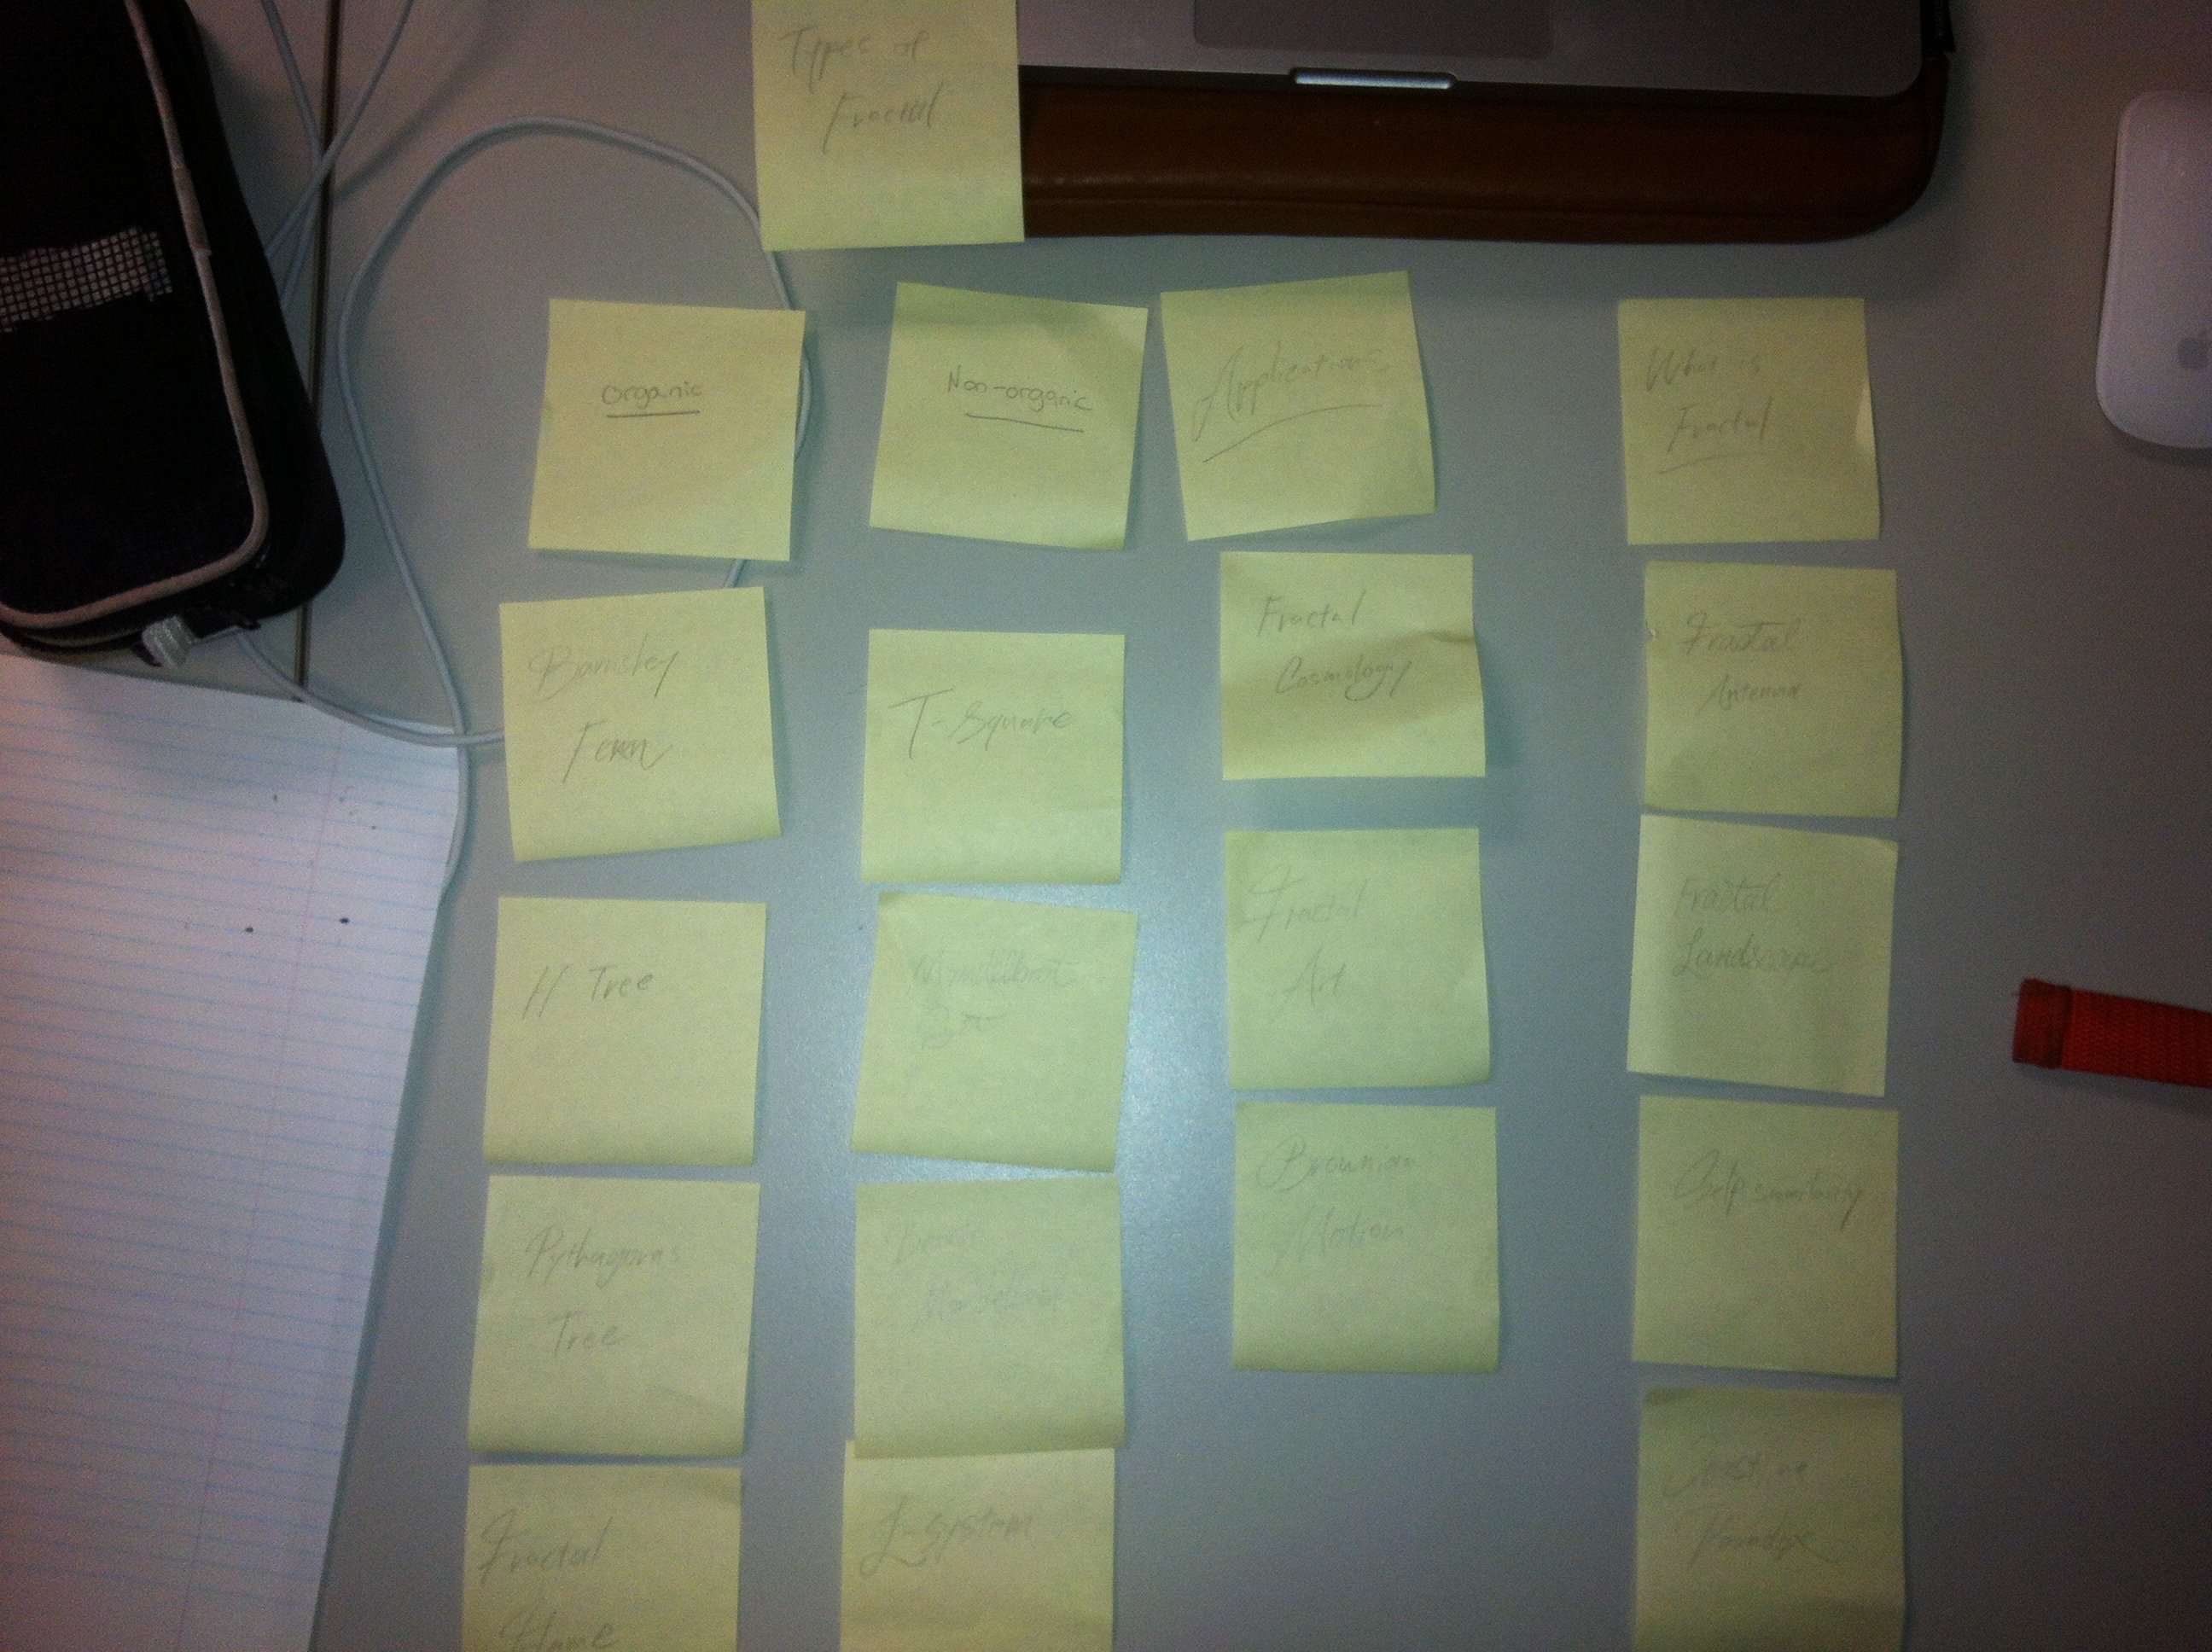 Types of
Fractal
Organic
Barnsley
Fern
H Tree
Pythagoras
Tree
Fractal
Flame
Non-organic
T-Square
Mandelbrot
Set
Mandelbrot
L-system
Applications
Fractal
Cosmology
Fractal
Art
Brownian
Motion
What is
Fractal
Fractal
Antenna
Fractal
Landscape
Self similarity
Coastline
Paradox